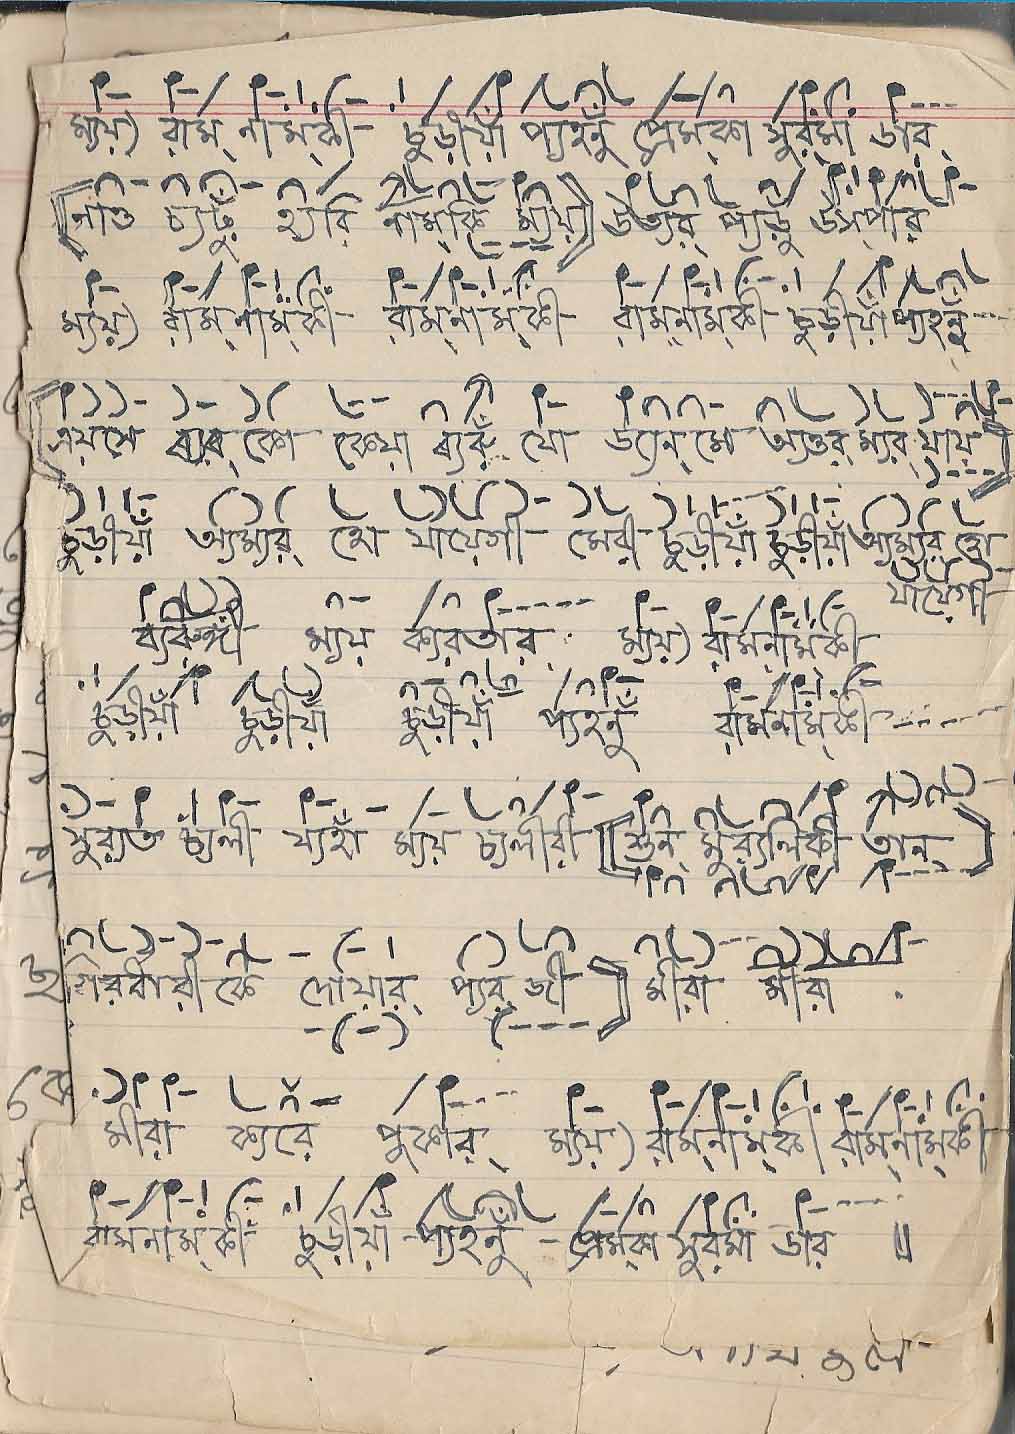 ম্যয়) রাম্ নাম্কী চুড়ীয়াঁ প্যহনুঁ প্রেম্কা সুর্মা ডার্
[নাও চ্যঢ়ুঁ হ্যরি নাম্কি ম্যয়] উত্যর্ প্যড়ুঁ উস্পার্
ম্যয়) রাম্নাম্কী রাম্নাম্কী রাম্নাম্কী চুড়ীয়াঁ প্যহনুঁ
[এয়সে ব্যর্ কো কেয়া ব্যরুঁ যো জ্যনমে অ্যওর্ ম্যর্ যায়্]
চুড়ীয়াঁ অ্যম্যর্ হো যায়েগী মেরী চুড়ীয়াঁ চুড়ীয়াঁ অ্যম্যর্ হো
যায়েগী
ব্যরুঙ্গী ম্যয় ক্যরতার্ ম্যয়) রাম্নাম্কী
চুড়ীয়াঁ চুড়ীয়াঁ চুড়ীয়াঁ প্যহনুঁ রামনাম্কী
সুর্যত চ্যলী য্যহাঁ ম্যয় চ্যলীরী [শুন্ মুর্যলিকী তান্]
গিরধারীকে দোয়ার্ প্যর্ জী] মীরা মীরা
মীরা ক্যরে পুকার্ ম্যয়) রাম্নাম্কী রাম্নাম্কী
রামনাম্কী চুড়ীয়াঁ প্যহনুঁ প্রেম্কা সুর্মা ডার ॥